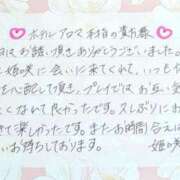 ホテル アロマ 利用の貴方様
日はお誘い頂きありがとうございました。
姫咲に会いに来てくれて、いつも
心配して頂き、プレイでは
くなくて良かったです。久しぶりにお
きて楽しかったです。またお時間合え
お待ちしております。
姫咲